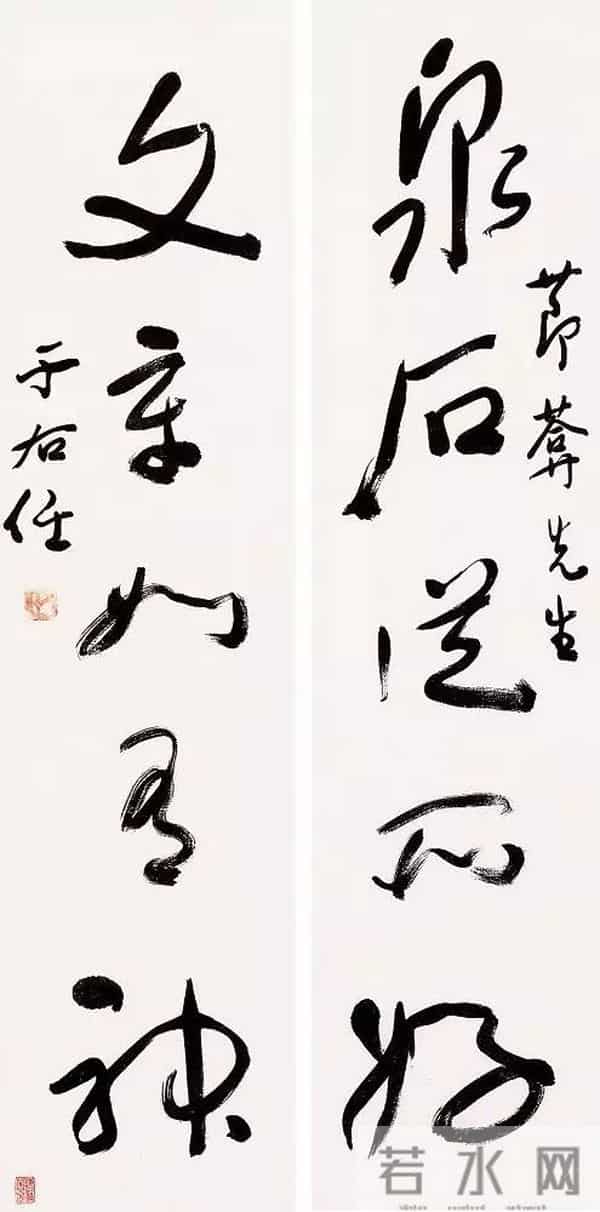 泉石從所好
莭葊先生
文章如有神
于右任
若水网